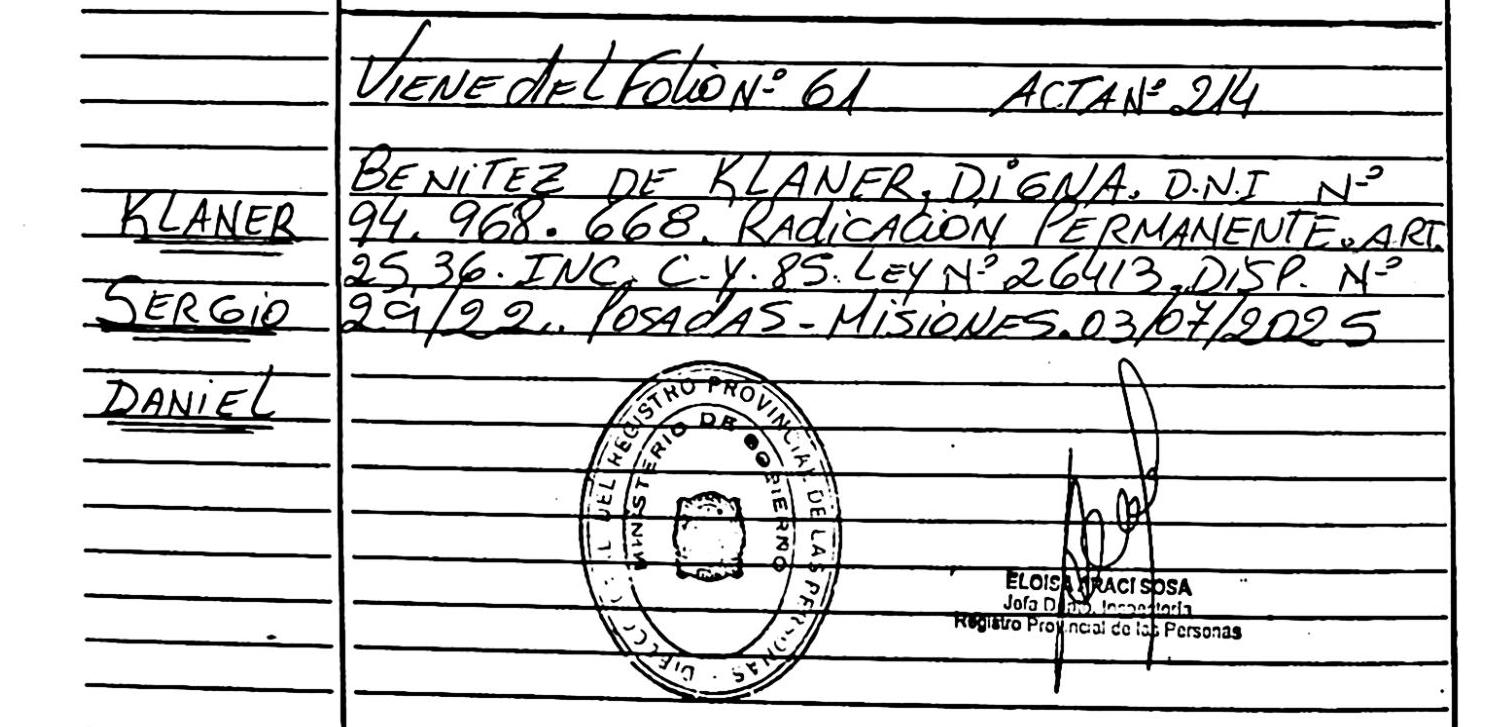 VIENE dEL Folio Nº 61 ACTA Nº 214
BENiTEZ DE KLANER, DiGNA. D.N.I Nº
KLANER
94.968.668. RAdiCACiON PERMANENTE. ART.
25,36. INC. C.Y. 85. LEY Nº 26413. DiSP. Nº
SERGiO
29/22. POSAdAS - MiSiONES. 03/07/2025
DANiEL
DEL REGISTRO PROVINCIAL DE LAS PERSONAS
MINISTERIO DE GOBIERNO
ELOISA ARACI SOSA
Jefa Dpto. Inspectoría
Registro Provincial de las Personas